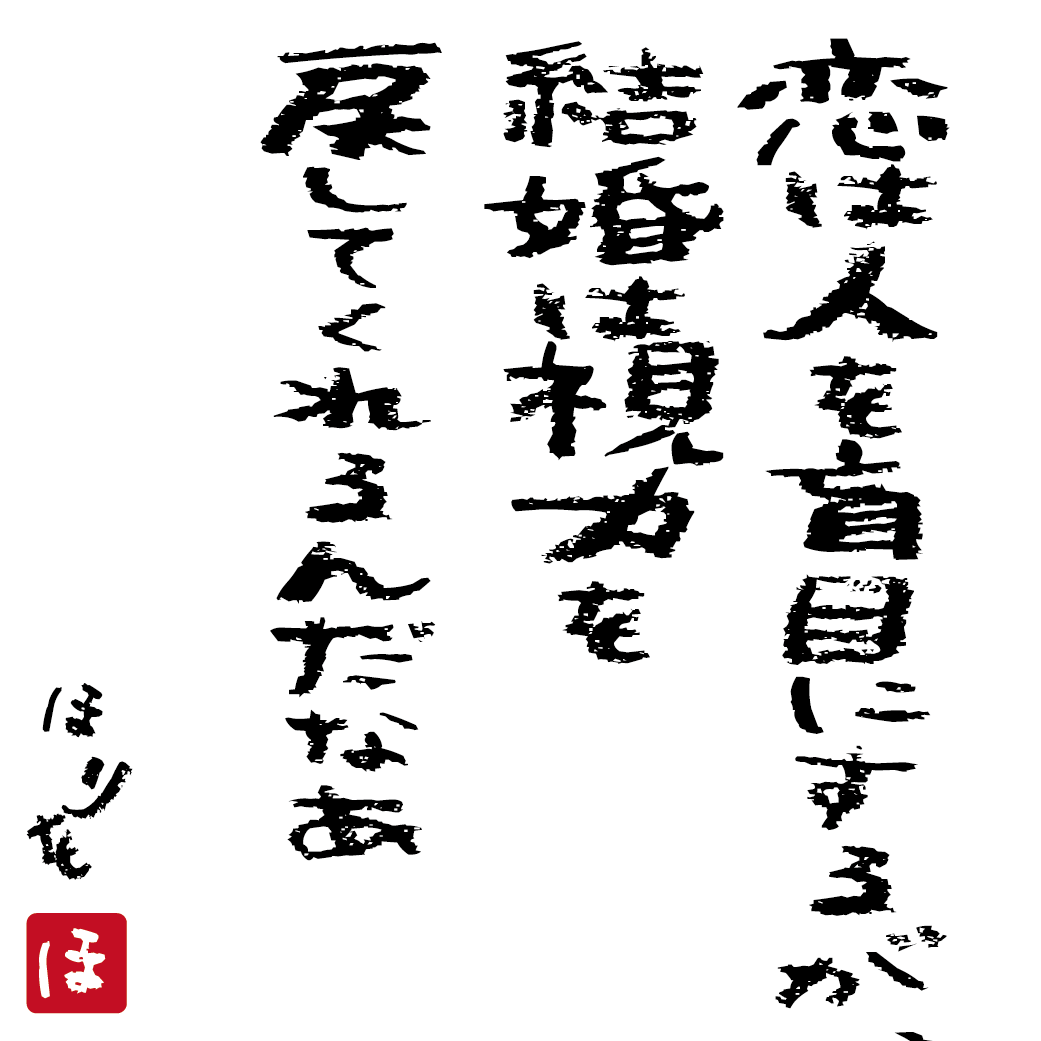 恋は人を盲目にするが、
結婚は視力を
戻してくれるんだなあ
ほりを
ほ